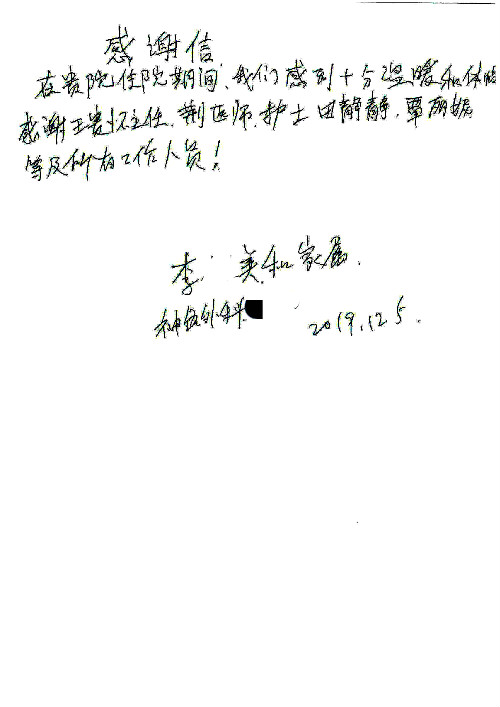 感谢信
在贵院住院期间,我们感到十分温暖和体贴
感谢王贵怀主任,荆医师,护士田静静,覃丽娜
等及所有工作人员!
李 美和家属.
神经外科
2019.12 5.